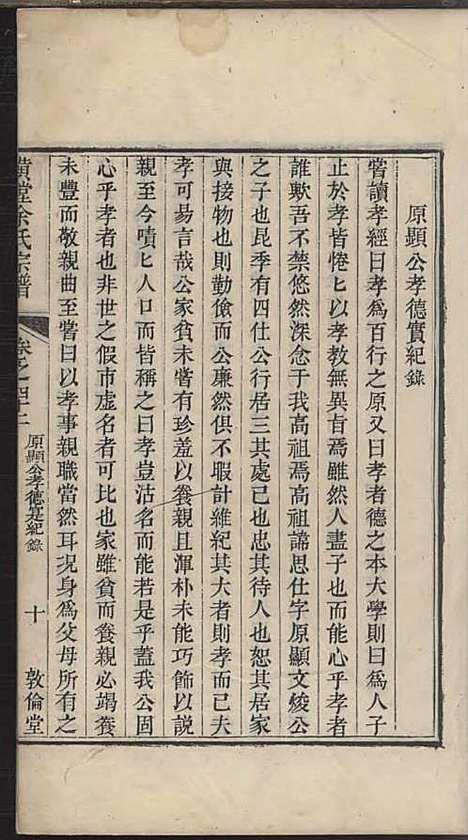 原顯公孝德實紀錄
嘗讀孝經曰孝為百行之原又曰孝者德之本大學則曰為人子
止於孝皆惓匕以孝教無異旨焉雖然人盡子也而能心乎孝者
誰歟吾不禁悠然深念于我高祖焉高祖諦思仕字原顯文焌公
之子也昆季有四仕公行居三其處己也忠其待人也恕其居家
與接物也則勤儉而公廉然俱不暇計維紀其大者則孝而已夫
孝可易言哉公家貧未嘗有珍羞以養親且渾朴未能巧飾以說
親至今嘖匕人口而皆稱之曰孝豈沽名而能若是乎蓋我公固
心乎孝者也非世之假市虛名者可比也家雖貧而養親必竭養
未豐而敬親曲至嘗曰以孝事親職當然耳況身為父母所有之
黃堂余氏宗譜
卷之四十二
原顯公孝德實紀錄
十
敦倫堂